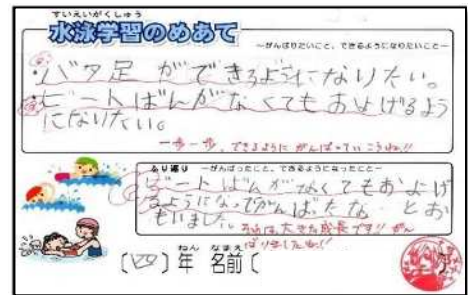 すいえいがくしゅう
水泳学習のめあて
―がんばりたいこと、できるようになりたいこと―
・バタ足 ができるようになりたい。
・ビートばんがなくてもおよげるよう
になりたい。
一歩一歩、できるように がんばっていこうね!!
ふり返り ―がんばったこと、できるようになったこと―
ビートばんがなくてもおよげ
るようになってがんばったな とお
もいました。
それは、大きな成長です!! がん
ばりましたね!!
ねん なまえ
年 名前〔